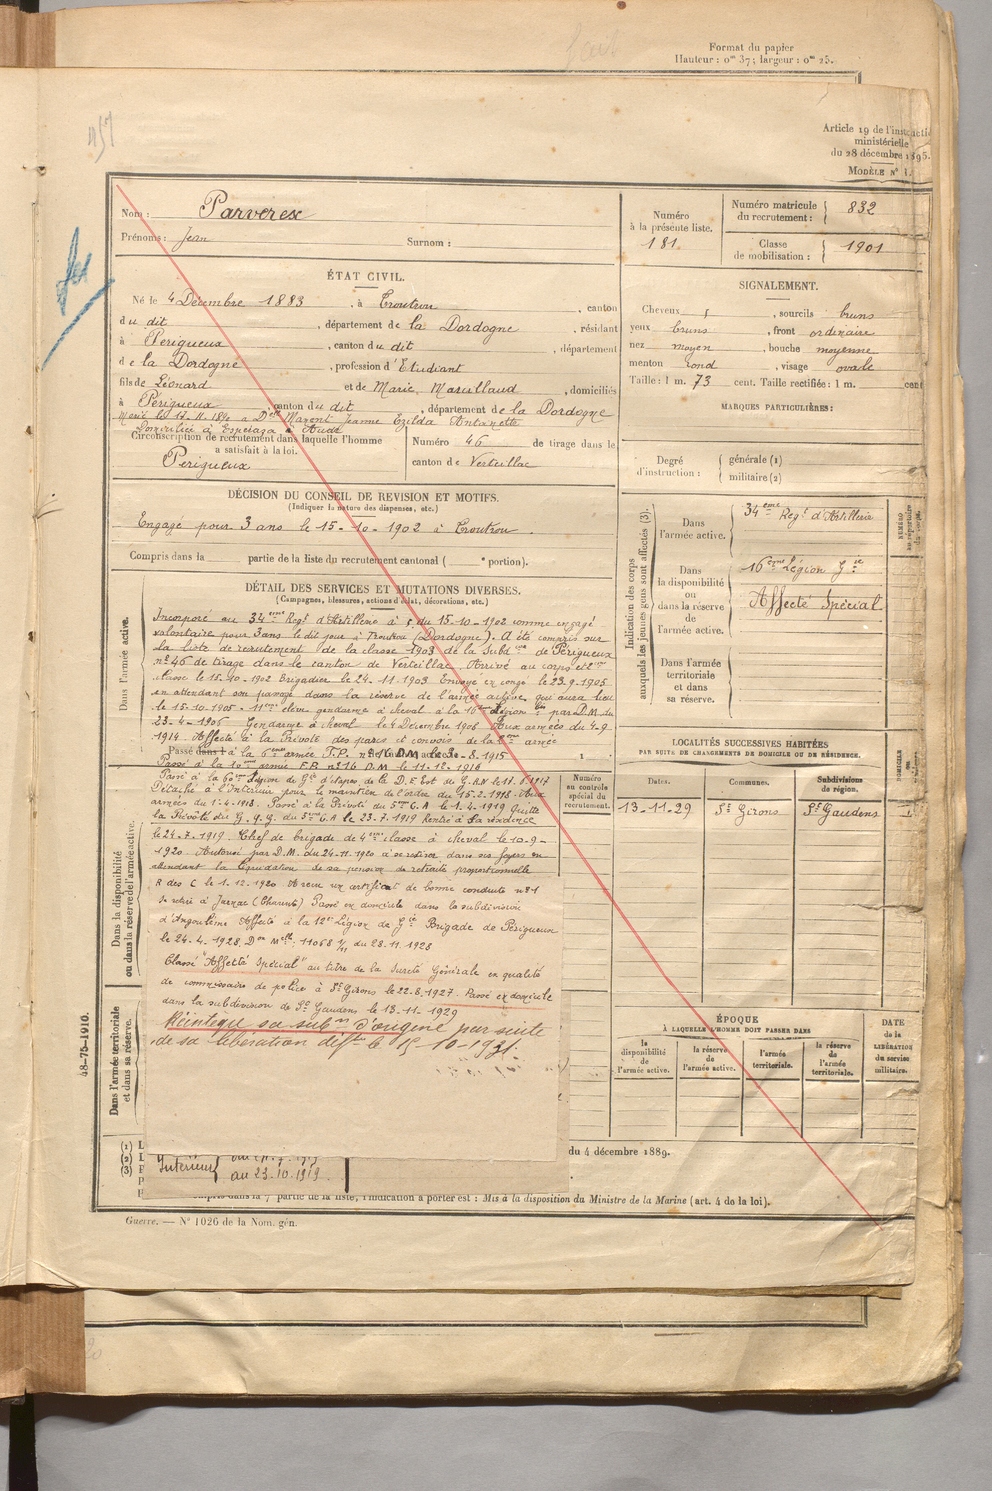 Format du papier
Hauteur : 0m 37; largeur : 0m 25.
Article 19 de l'instruction
ministérielle
du 28 décembre 1895.
MODÈLE N° 1.
Nom : Parverex
Prénoms : Jean Surnom :
Numéro
à la présente liste.
181.
Numéro matricule
du recrutement : 832
Classe
de mobilisation : 1901
ÉTAT CIVIL.
Né le 4 Décembre 1883, à Coutrou, canton
du dit, département de la Dordogne, résidant
à Périgueux, canton du dit, département
de la Dordogne, profession d'Etudiant
fils de Léonard et de Marie Marcillaud, domiciliés
à Périgueux, canton du dit, département de la Dordogne
Marié le 17.11.1890 a Delle Jeanne Ezilda Antoinette
Domiciliée à Esperaza Aude
Circonscription de recrutement dans laquelle l'homme
a satisfait à la loi.
Périgueux
Numéro 46 de tirage dans le
canton de Verteillac
SIGNALEMENT.
Cheveux, sourcils bruns
yeux bruns, front ordinaire
nez moyen, bouche moyenne
menton rond, visage ovale
Taille : 1 m. 73 cent. Taille rectifiée : 1 m. cent
MARQUES PARTICULIÈRES :
Degré
d'instruction :
générale (1)
militaire (2)
DÉCISION DU CONSEIL DE REVISION ET MOTIFS.
(Indiquer la nature des dispenses, etc.)
Engagé pour 3 ans le 15-10-1902 à
Compris dans la partie de la liste du recrutement cantonal ( e portion).
Indication des corps
auxquels les jeunes gens sont affectés (3).
Dans
l'armée active.
34eme Regt d'Artillerie
Dans
la disponibilité
ou dans la réserve
de
l'armée active.
16eme Légion Gie
Affecté Spécial
Dans l'armée
territoriale
et dans
sa réserve.
DÉTAIL DES SERVICES ET MUTATIONS DIVERSES.
(Campagnes, blessures, actions d'éclat, décorations, etc.)
Dans l'armée active.
Incorporé au 34eme Regt d'Artillerie à c. du 15-10-1902 comme engagé
volontaire pour 3 ans le dit jour à (Dordogne). A été compris sur
la liste de recrutement de la classe 1903 de la Subdon de Périgueux
n° 46 de tirage dans le canton de Verteillac. Arrivé au corps et 2me
classe le 15-10-1902 Brigadier le 24-11-1903 Envoyé en congé le 23.9.1905
en attendant son passage dans la réserve de l'armée active, qui aura lieu
le 15-10-1905 - élève gendarme à cheval à la 16eme Légion par D.M. du
23-4-1906 Gendarme à cheval le 4 Décembre 1906 Aux armées du 4-9
1914 Affecté à la Prévoté des parcs et convois de la armée
Passé à la 6eme armée F.P. n°16 D.M. 3-8-1915
Passé à la 10eme armée F.P. n°16 D.M. le 11-12-1916
Passé à la 60eme Légion de Gie d'étapes de la D.E. Est du G.A.N le 17-1917
Détaché à l'Intérieur pour le maintien de l'ordre du 15-2-1918 Aux
armées du 1-4-1918. Passé à la Prévoté du 5eme C.A le 1-4-1919 Quitte
la Prévoté du Q.G. du 5eme C.A le 23-7-1919 Rentré à la résidence
le 24-7-1919. Chef de brigade de 4eme classe à cheval le 10-9-
1920 Autorisé par D.M. du 24-11-1920 à se retirer dans ses foyers en
attendant la liquidation de sa pension de retraite proportionnelle
R des C le 1.12.1920 A reçu un certificat de bonne conduite n°1
Se retire à Jarnac (Charente) Passé en domicile dans la subdivision
d'Angoulême Affecté à la 12e Légion de Gie Brigade de Périgueux
le 24.4.1928 Don Melle : 11068 1/11 du 28.11.1928
Classé "Affecté Spécial" au titre de la Sureté Générale en qualité
de commissaire de police à St Girons le 22-8-1927. Passé en domicile
dans la subdivision de St Gaudens le 13-11-1929
Réintègre sa subon d'origine par suite
de sa libération défve le 15-10-1931.
Dans la disponibilité
ou dans la réserve de l'armée active.
Dans l'armée territoriale
et dans sa réserve.
Numéro
au contrôle
spécial du
recrutement.
LOCALITÉS SUCCESSIVES HABITÉES
PAR SUITE DE CHANGEMENTS DE DOMICILE OU DE RÉSIDENCE.
Dates. Communes. Subdivisions
de région.
13.11.29 St Girons St Gaudens
ÉPOQUE
À LAQUELLE L'HOMME DOIT PASSER DANS
la
disponibilité
de
l'armée active.
la réserve
de
l'armée active.
l'armée
territoriale.
la réserve
de
l'armée
territoriale.
DATE
de la
LIBÉRATION
du service
militaire.
48-75-1910.
(1) L
(2) L
(3) F
P
du 4 décembre 1889.
Intérieur
au 23.10.1919.
partie de la liste, l'indication à porter est : Mis à la disposition du Ministre de la Marine (art. 4 de la loi).
Guerre. — N° 1026 de la Nom. gén.